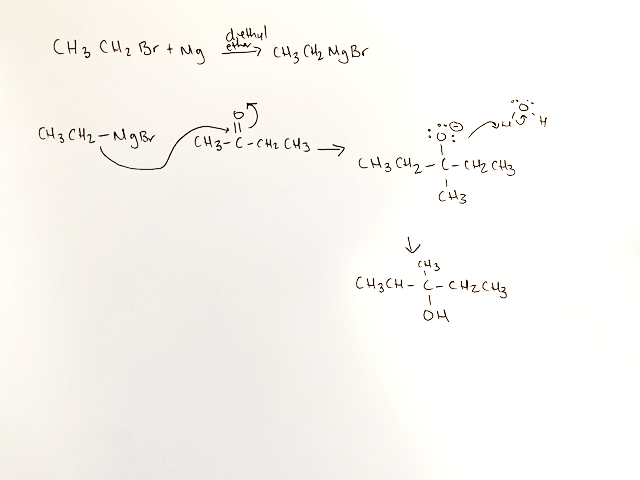 CH3 CH2 Br + Mg diethyl ether → CH3 CH2 MgBr
CH3CH2 – MgBr
O
CH3 – C – CH2 CH3 →
:O: ⊖
H O H
CH3 CH2 – C – CH2CH3
CH3
↓
CH3
CH3CH – C – CH2CH3
OH